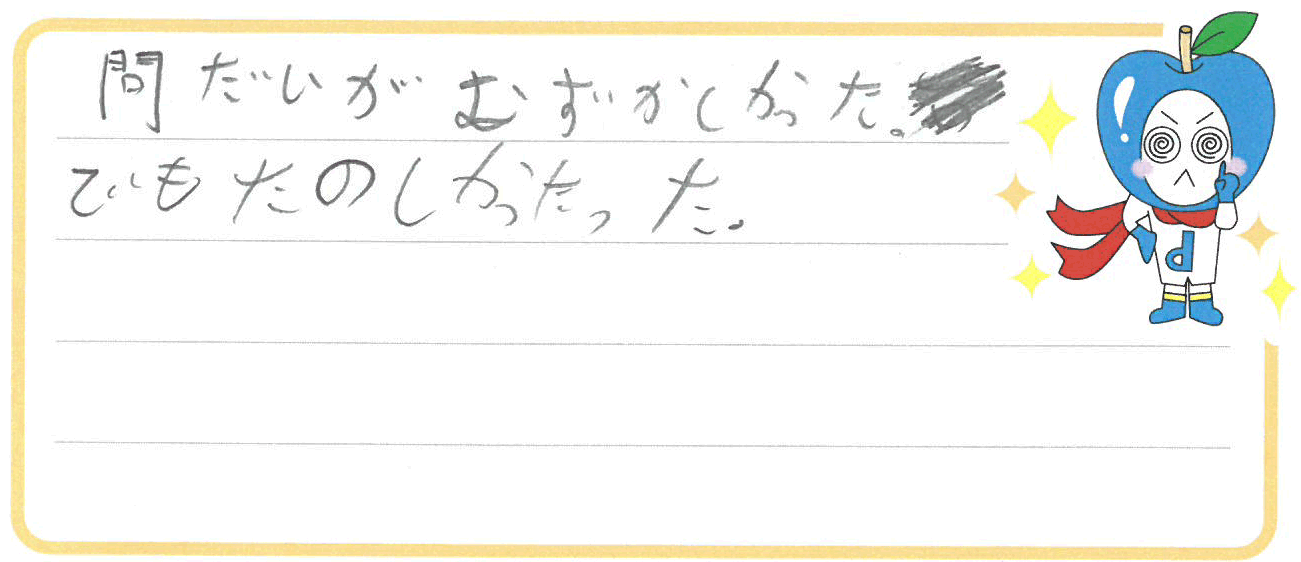 問だいがむずかしかった。
でもたのしかったった。